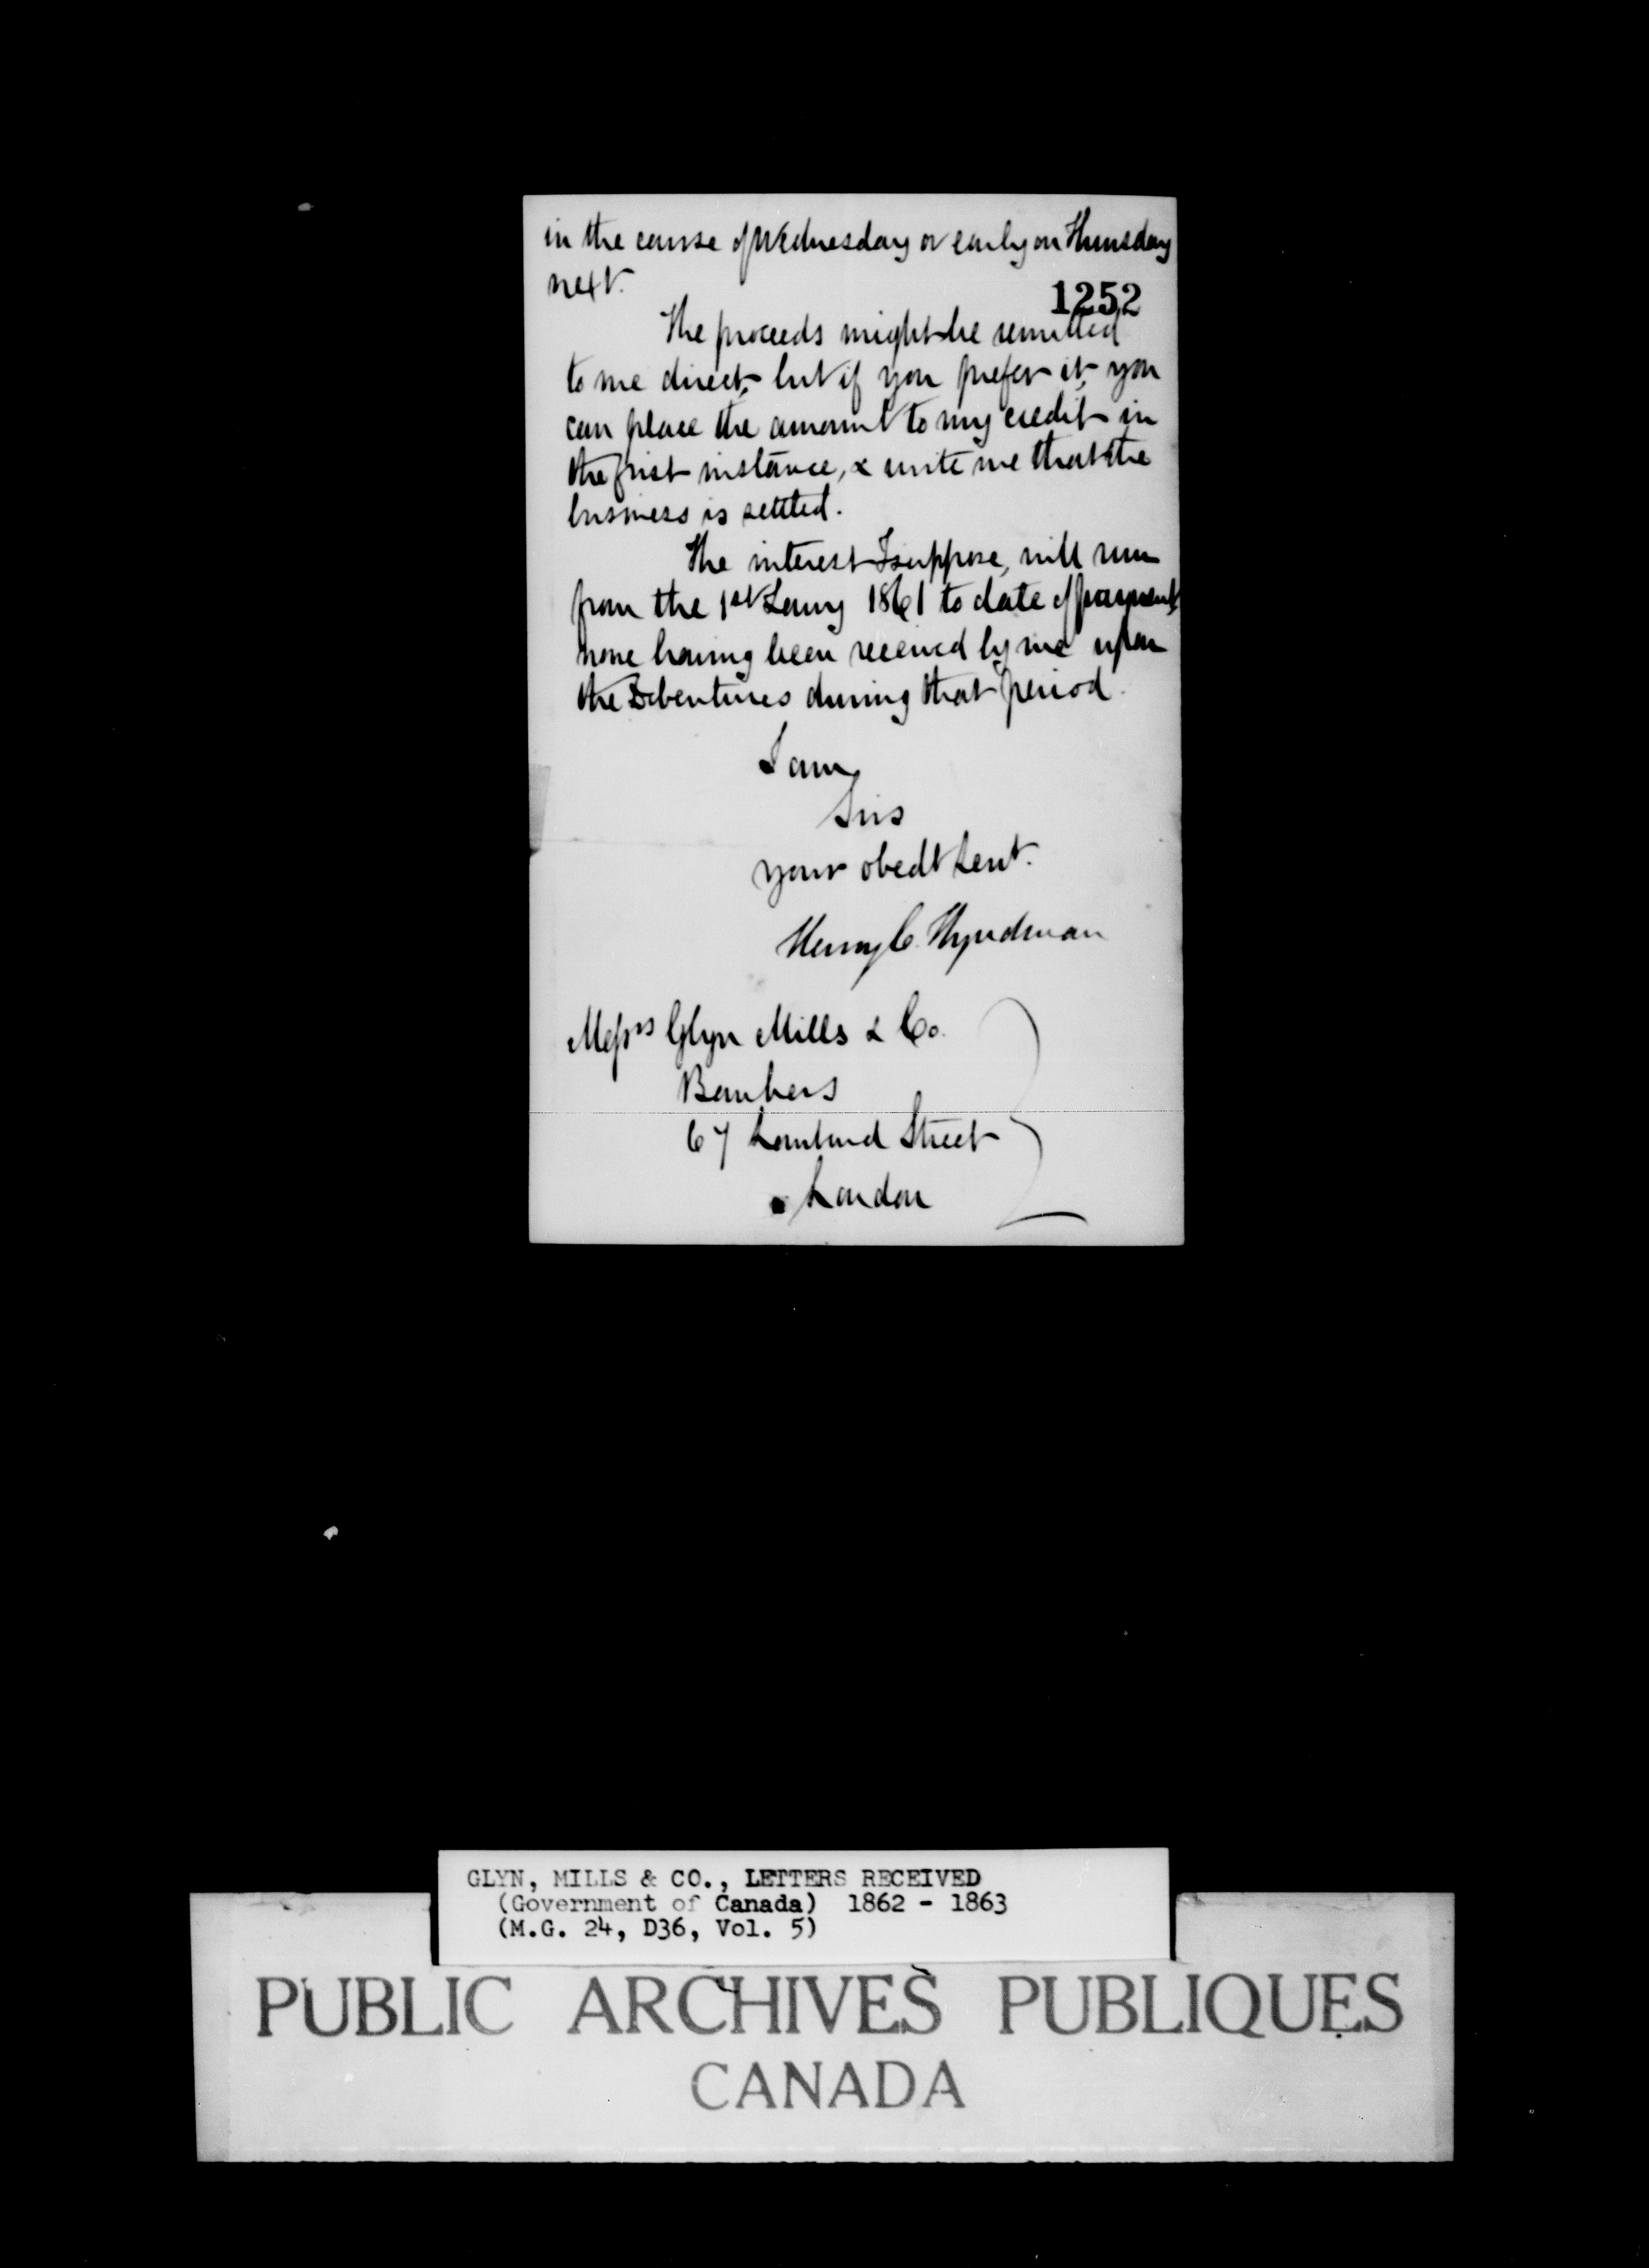 in the course of Wednesday or early on Thursday
next.
1252
The proceeds might be remitted
to me direct, but if you prefer it, you
can place the amount to my credit in
the first instance, & write me that the
business is settled.
The interest I suppose, will run
from the 1st Jany 1861 to date of payment,
none having been received by me upon
the Debentures during that period.
I am
Sirs
your obedt Servt.
Henry C. Hyndman
Messrs Glyn Mills & Co.
Bankers
67 Lombard Street
London
GLYN, MILLS & CO., LETTERS RECEIVED
(Government of Canada) 1862 - 1863
(M.G. 24, D36, Vol. 5)
PUBLIC ARCHIVES PUBLIQUES
CANADA